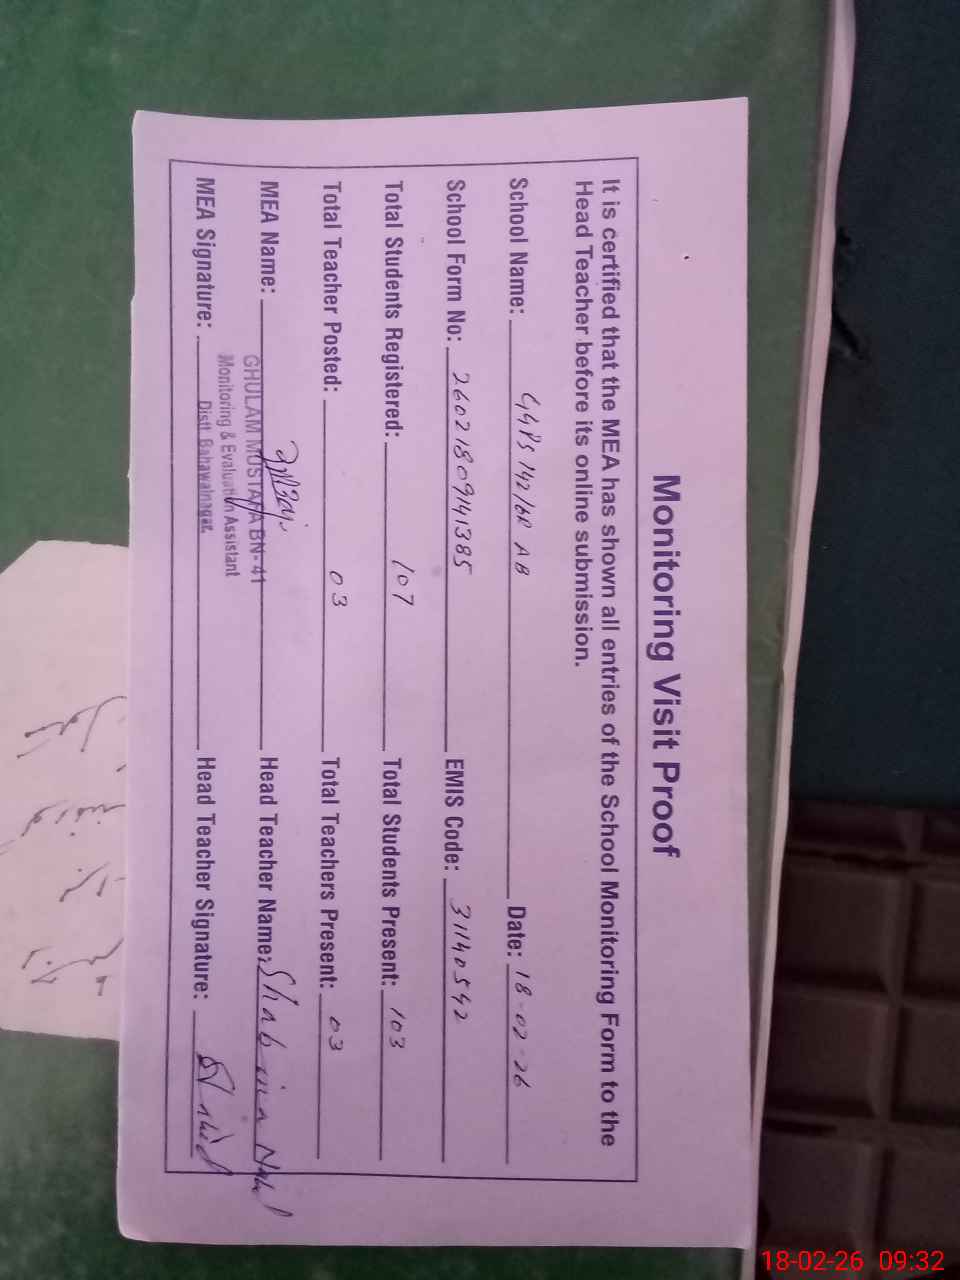 Monitoring Visit Proof
It is certified that the MEA has shown all entries of the School Monitoring Form to the
Head Teacher before its online submission.
School Name: GGPS 142/6R AB Date: 18-02-26
School Form No: 26021809141385 EMIS Code: 31140592
Total Students Registered: 107 Total Students Present: 103
Total Teacher Posted: 03 Total Teachers Present: 03
MEA Name: Head Teacher Name: Shabina
GHULAM MUSTAFA BN-41
Monitoring & Evaluation Assistant
Distt. Bahawalnagar.
MEA Signature: Head Teacher Signature:
18-02-26 09:32